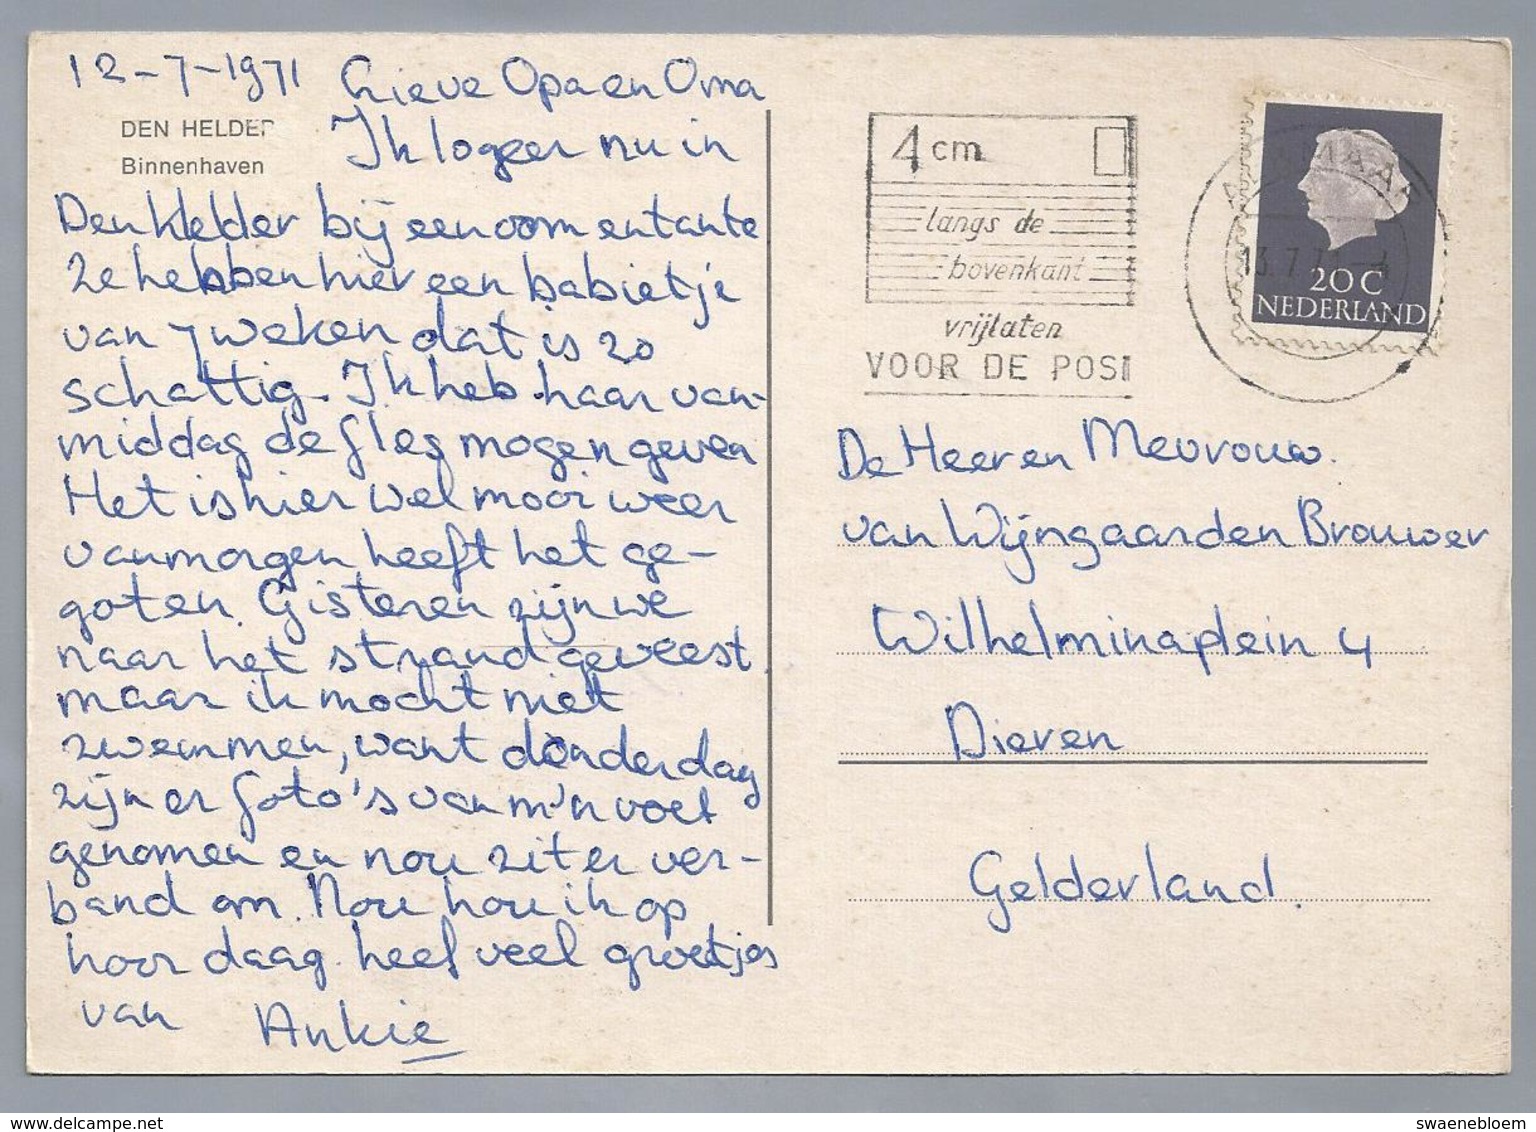 12-7-1971 Lieve Opa en Oma
DEN HELDER
Binnenhaven
Ik logeer nu in
Den Helder bij een oom en tante
Ze hebben hier een babietje
van 7 weken dat is zo
schattig. Ik heb haar van-
middag de fles mogen geven
Het is hier wel mooi weer
vanmorgen heeft het ge-
goten. Gisteren zijn we
naar het strand geweest
maar ik mocht niet
zwemmen, want donderdag
zijn er foto's van m'n voet
genomen en nou zit er ver-
band om. Nou hou ik op
hoor daag. heel veel groetjes
van Ankie
4 cm
langs de
bovenkant
vrijlaten
VOOR DE POST
ALKMAAR
13.7.71
20C
NEDERLAND
De Heer en Mevrouw.
van Wijngaarden Brouwer
Wilhelminaplein 4
Dieren
Gelderland.
www.delcampe.net
swaenebloem